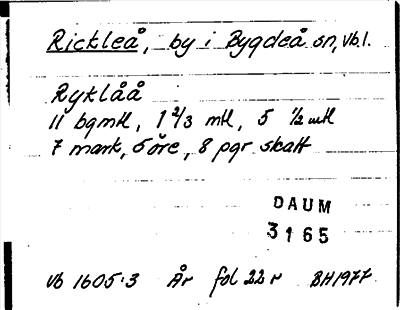 Rickleå, by i Bygdeå sn, Vb.l.
Ryklåå
11 bgmtl, 1 2/3 mtl, 5 1/2 mtl
7 mark, 6 öre, 8 pgr skatt
DAUM
3165
Vb 1605:3 År fol 22 r BH1977